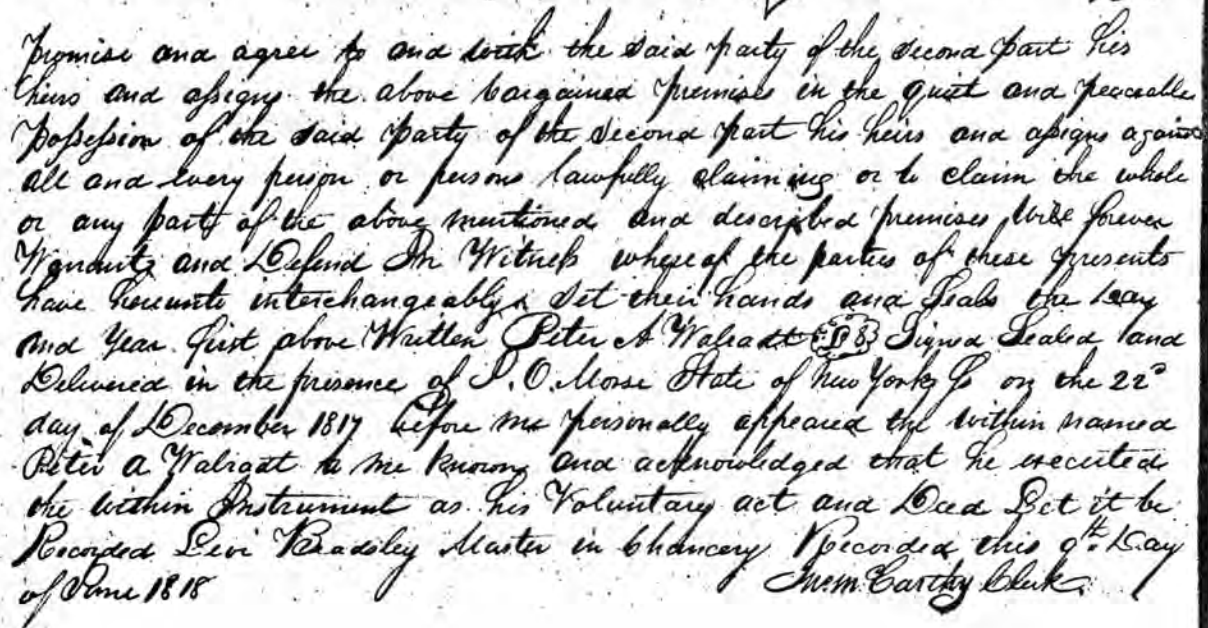 promise and agree to and with the said party of the second part his
heirs and assigns the above bargained premises in the quiet and peaceable
Possession of the said party of the second part his heirs and assigns against
all and every person or persons lawfully claiming or to claim the whole
or any part of the above mentioned and described premises will forever
Warrant and Defend In Witness whereof the parties of these presents
have hereunto interchangeably set their hands and Seals the day
and Year first above Written Peter A Walradt Signed Sealed and
Delivered in the presence of J. O. Morse State of New York on the 22d
day of December 1817 before me personally appeared the within named
Peter A Walradt to me known and acknowledged that he executed
the within Instrument as his Voluntary act and Deed Let it be
Recorded Levi Beadsley Master in Chancery Recorded this 9th Day
of June 1818 Carthy Clerk